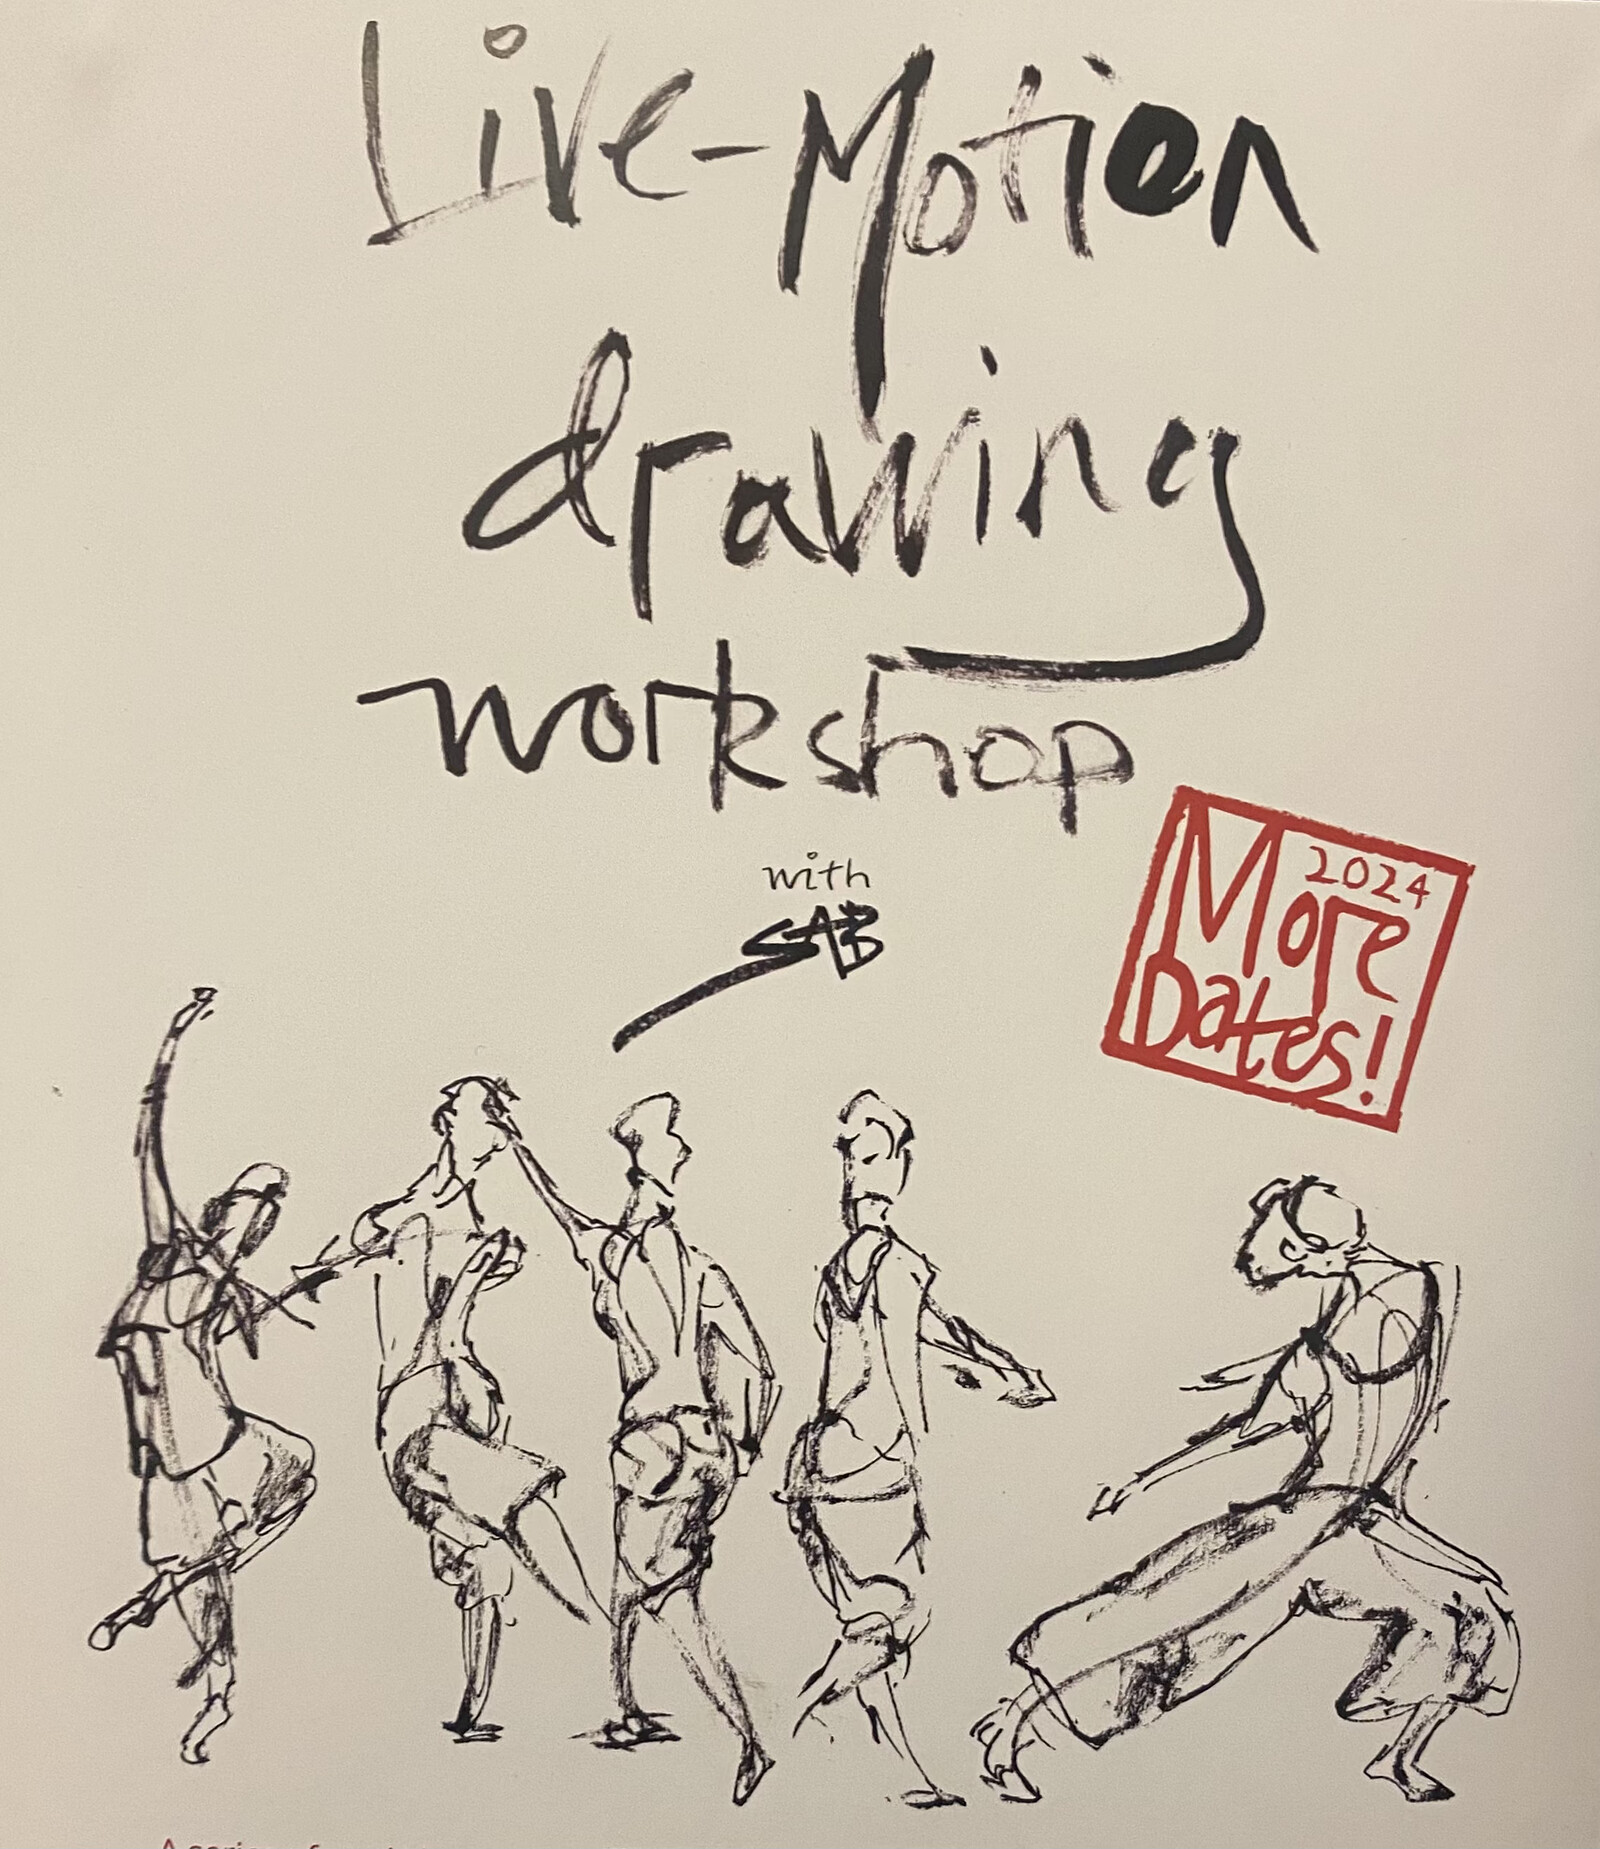 Live-Motion
drawing
workshop
with
SAB
2024
More
Dates!